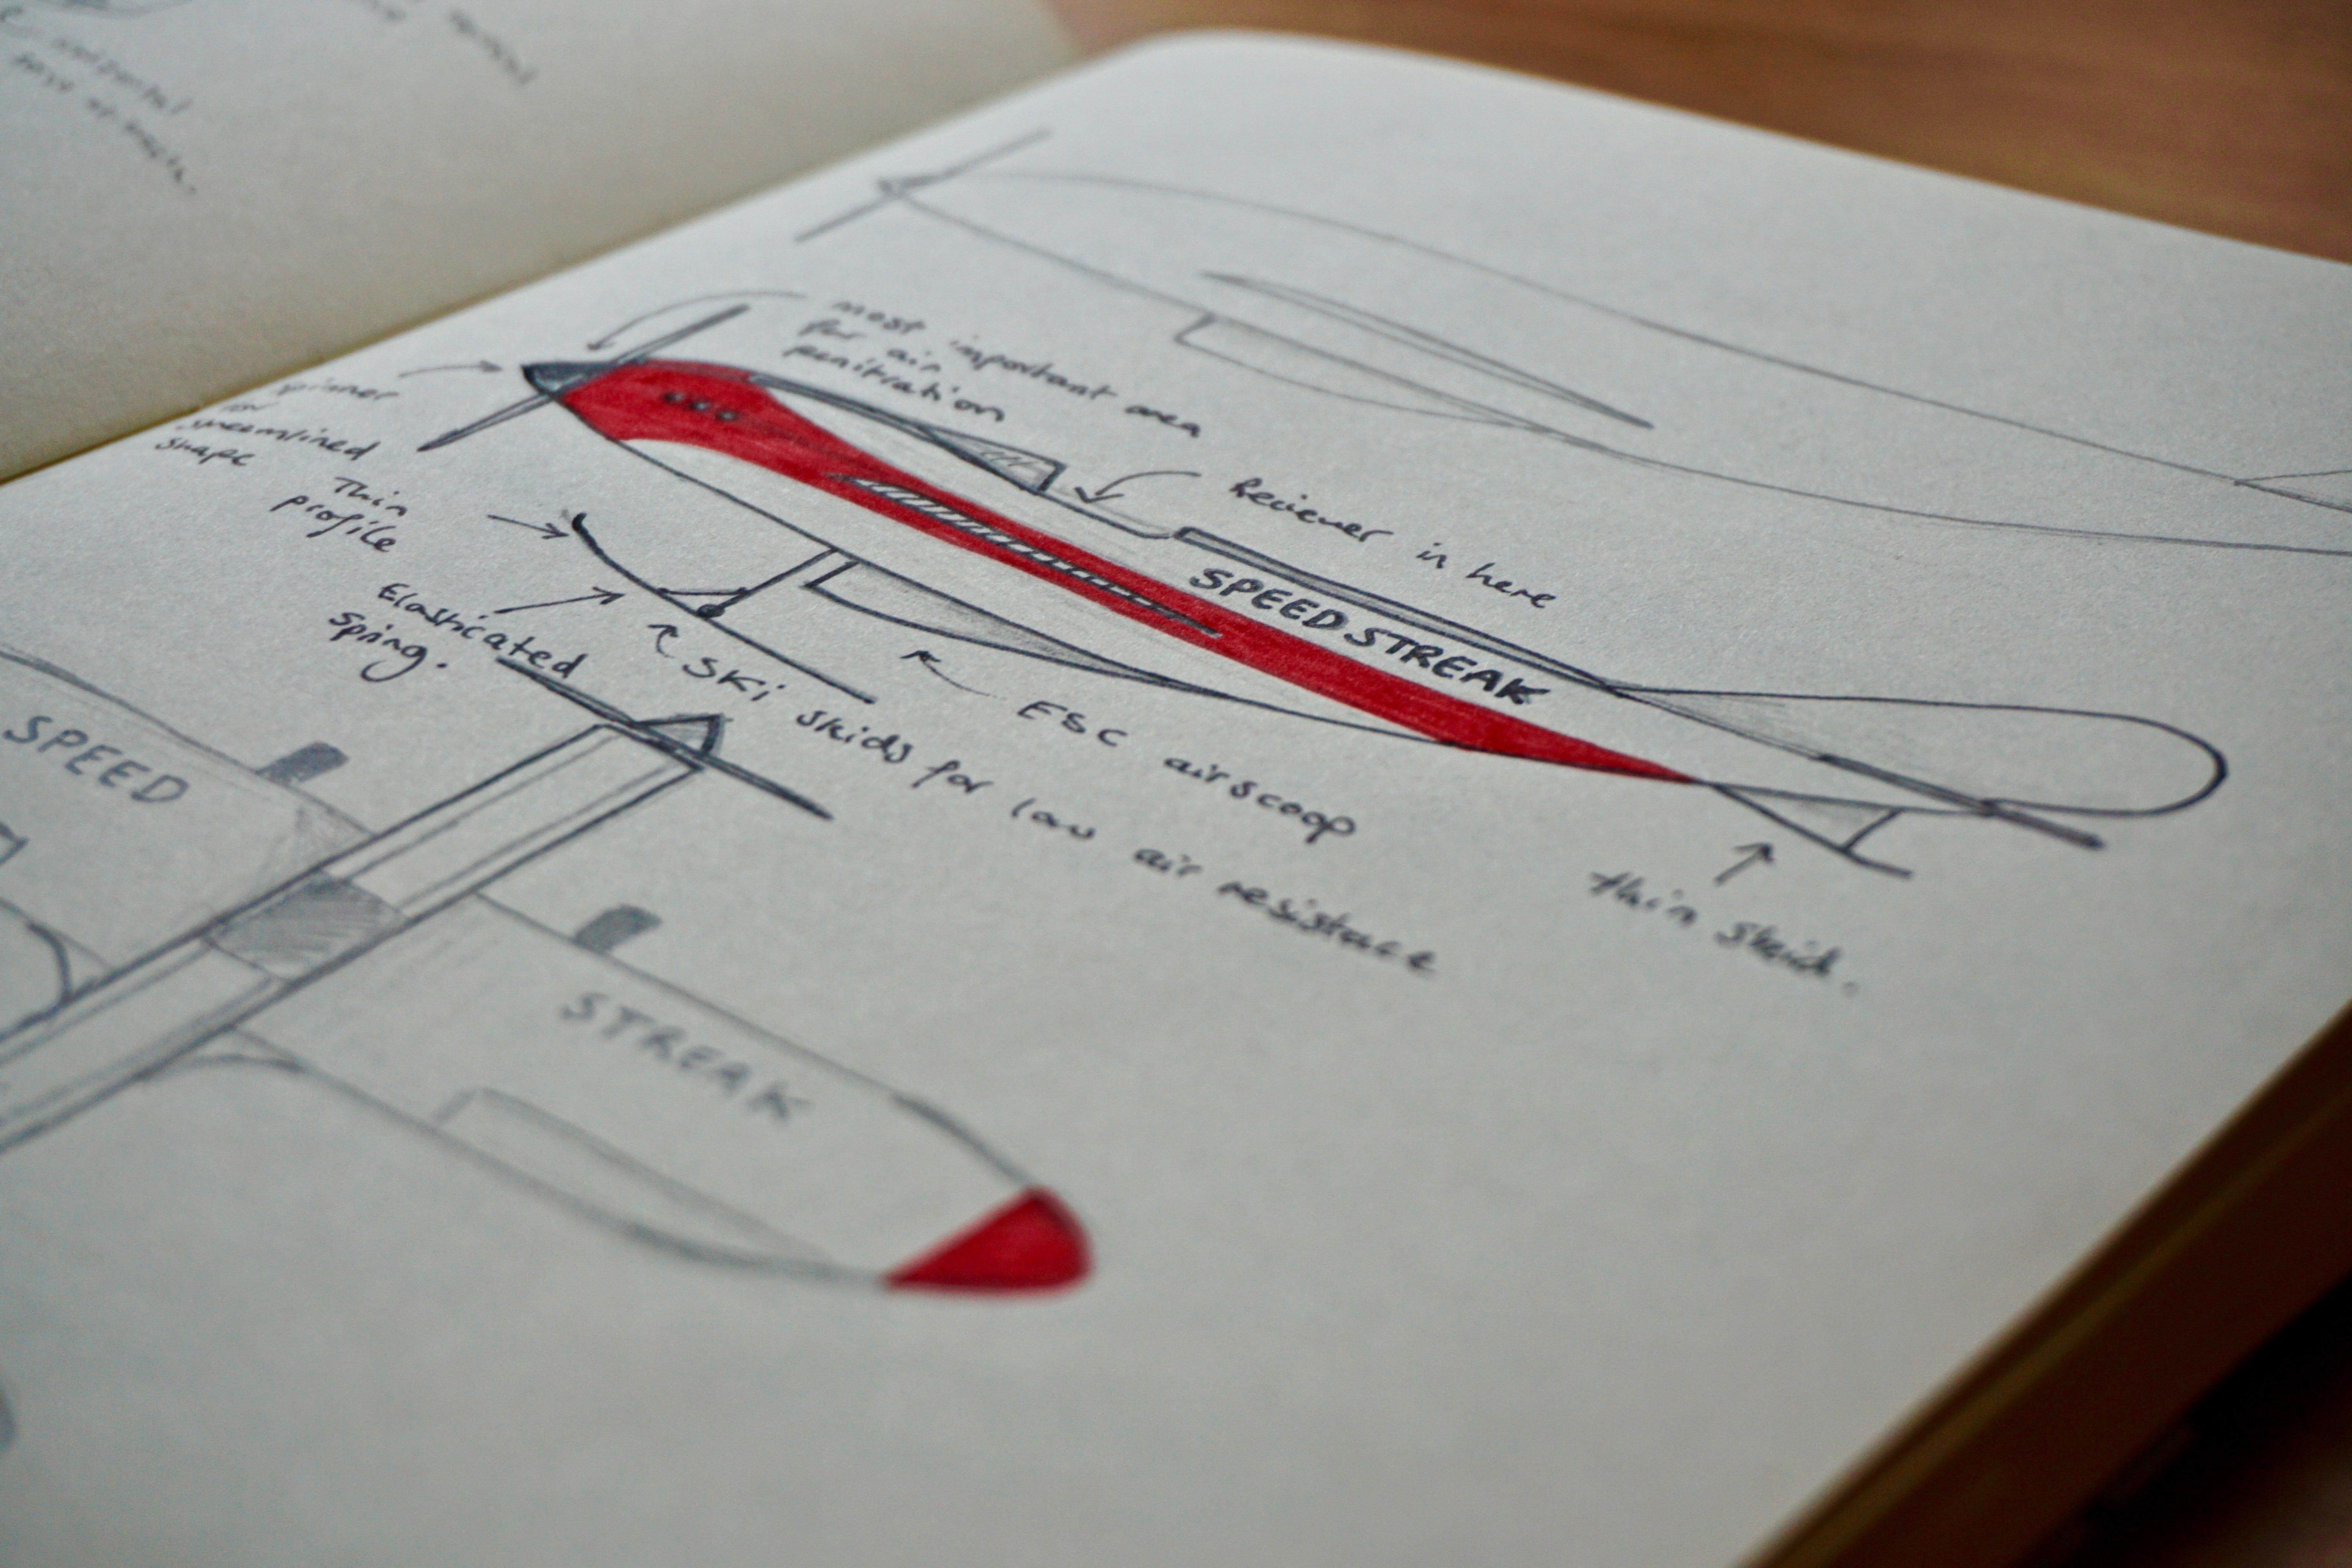 most important area
for air
penitration
spinner
for
streamlined
shape
Thin
profile
Reciever in here
SPEED STREAK
Elasticated
spring.
SKi skids for low air resistance
ESC airscoop
thin skid.
SPEED
STREAK